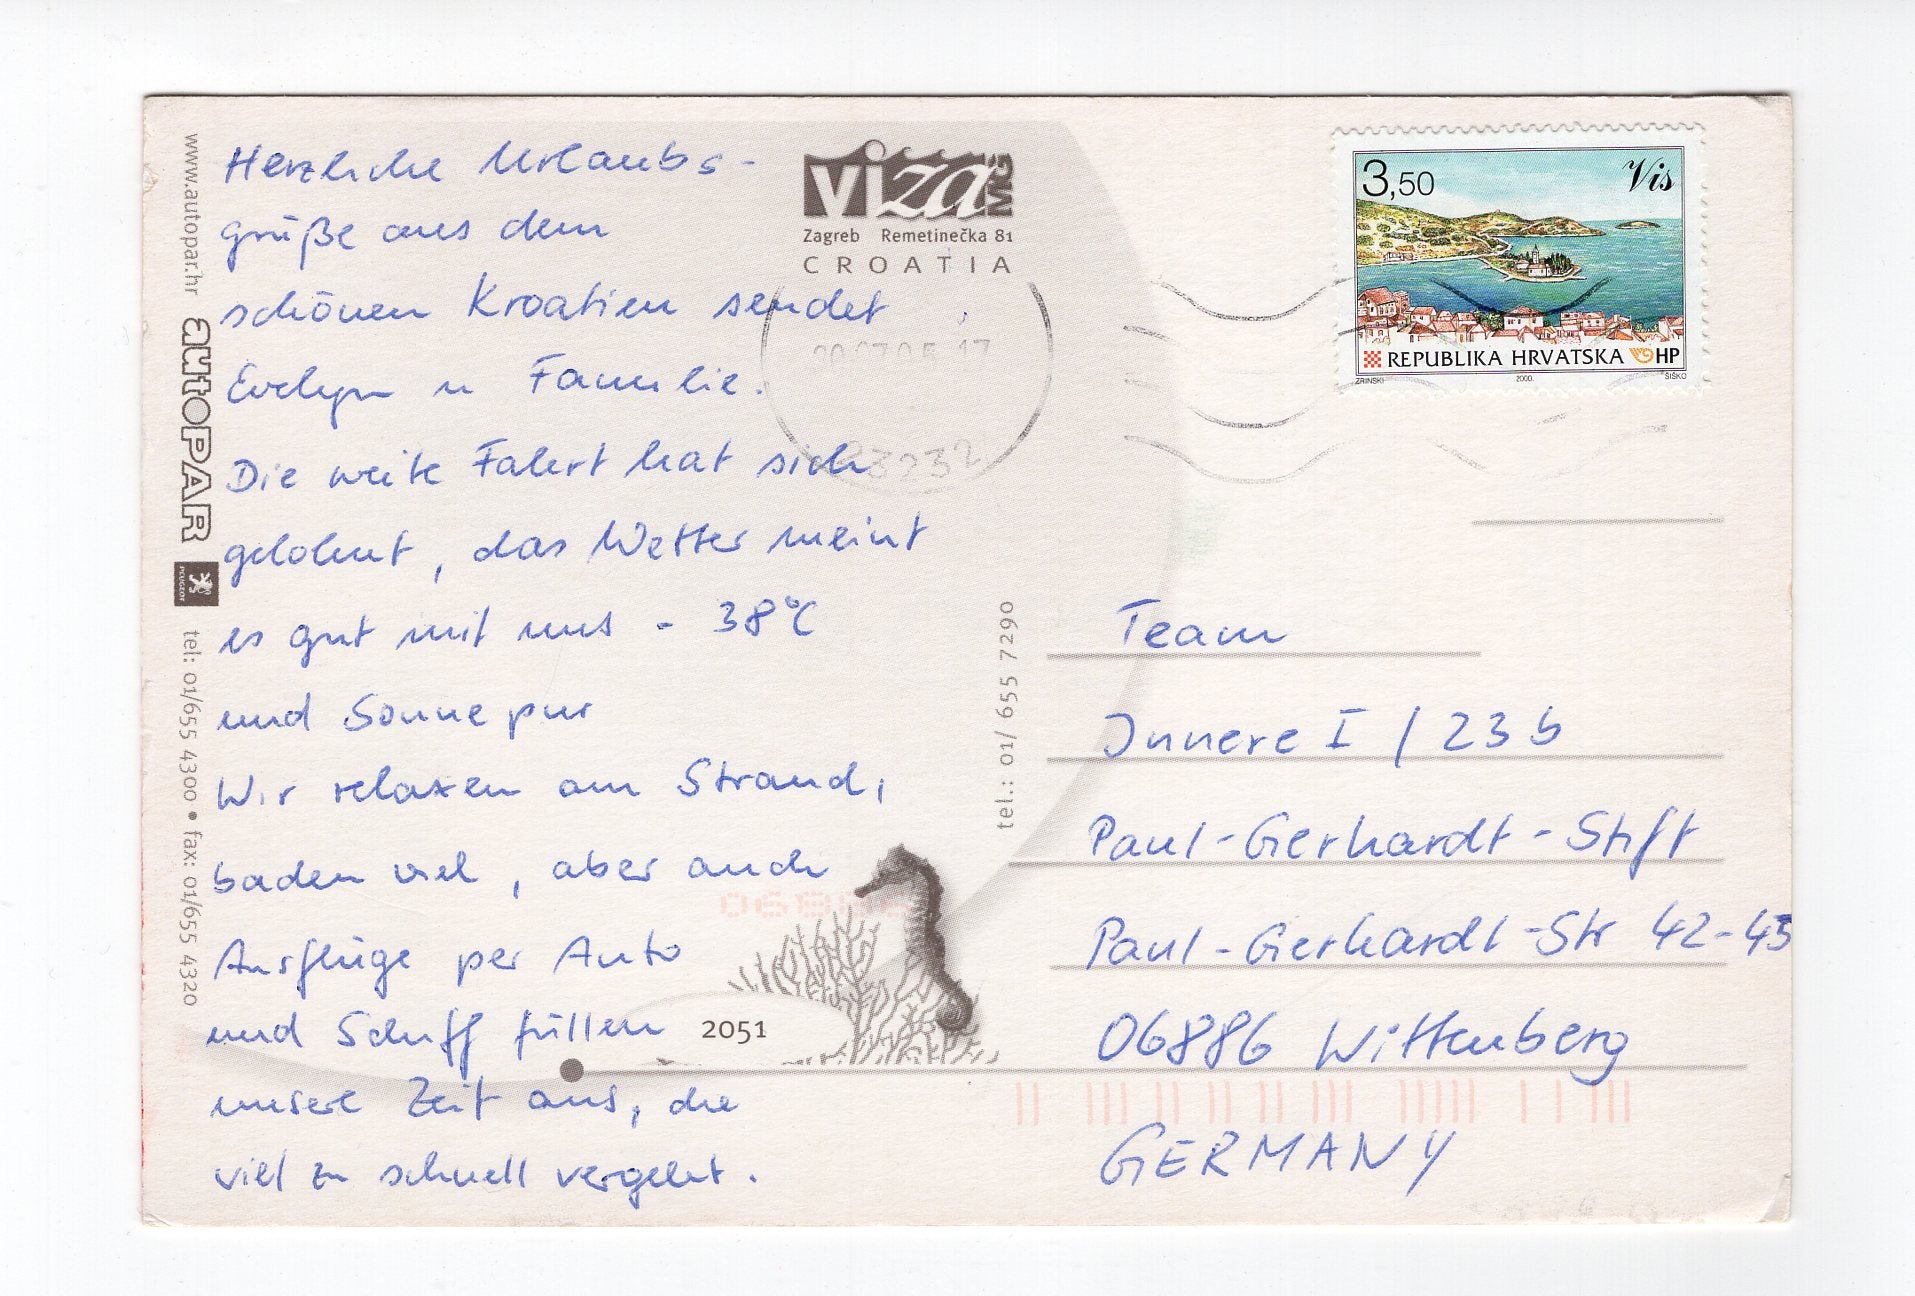 Herzliche Urlaubs-
grüße aus dem
schönen Kroatien sendet
Evelyn u Familie.
Die weite Fahrt hat sich
gelohnt, das Wetter meint
es gut mit uns - 38°C
und Sonne pur
Wir relaxen am Strand,
baden viel, aber auch
Ausflüge per Auto
und Schiff füllen
unsere Zeit aus, die
viel zu schnell vergeht.
www.autopar.hr autoPAR PEUGEOT tel: 01/655 4300 • fax: 01/655 4320
viza MG
Zagreb Remetinečka 81
CROATIA
20.07.05.17
23232
tel.: 01/ 655 7290
2051
3,50
Vis
REPUBLIKA HRVATSKA HP
ZRINSKI 2000. ŠIŠKO
Team
Innere I / 23 b
Paul-Gerhardt-Stift
Paul-Gerhardt-Str 42-45
06886 Wittenberg
GERMANY